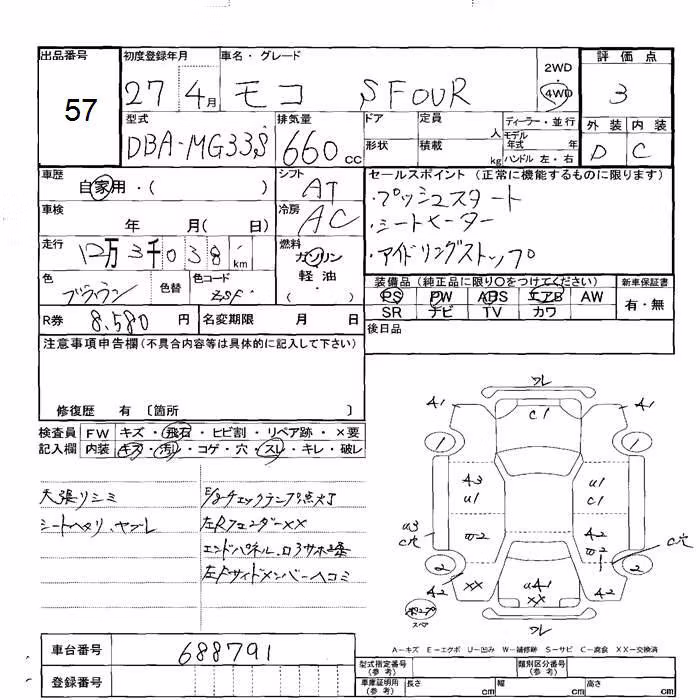 出品番号 初度登録年月 車名・グレード 2WD 評価点
57 27 4月 モコ S FOUR 4WD 3
型式 排気量 ドア 定員 人 ディーラー・並行 外装 内装
DBA-MG33S 660cc 形状 積載 kg モデル年式 年 ハンドル 左・右 D C
車歴 自家用・( ) シフト AT セールスポイント(正常に機能するものに限ります)
・プッシュスタート
車検 年 月( 日) 冷房 AC ・シートヒーター
走行 12万3千038km 燃料 ガソリン 軽油・( ) ・アイドリングストップ
色 ブラウン 色替 色コード 装備品(純正品に限り○をつけてください) 新車保証書
PS PW ABS エアB AW 有・無
SR ナビ TV カワ
R券 8,580円 名変期限 月 日 後日品
注意事項申告欄(不具合内容等は具体的に記入して下さい)
修復歴 有〔箇所 〕
検査員 FW キズ・飛石・ヒビ割・リペア跡・×要
記入欄 内装 キズ・汚レ・コゲ・穴・スレ・キレ・破レ
天張リシミ
シートヘタリ、ヤブレ
E/gチェックランプ点灯
左Rフェンダーxx
左Fサイドメンバーヘコミ
ワレ
A1 C1 A1
1 1
A3 U1
U1 C1
U3 C穴
A2
C穴
2 2
A2 XX A2
XX
ワレ
A−キズ E−エクボ U−凹み W−補修跡 S−サビ C−腐食 XX−交換済
車台番号 688791
登録番号
型式指定番号(参考) 類別区分番号(参考)
車庫証明用(参考) 長さ cm 幅 cm 高さ cm